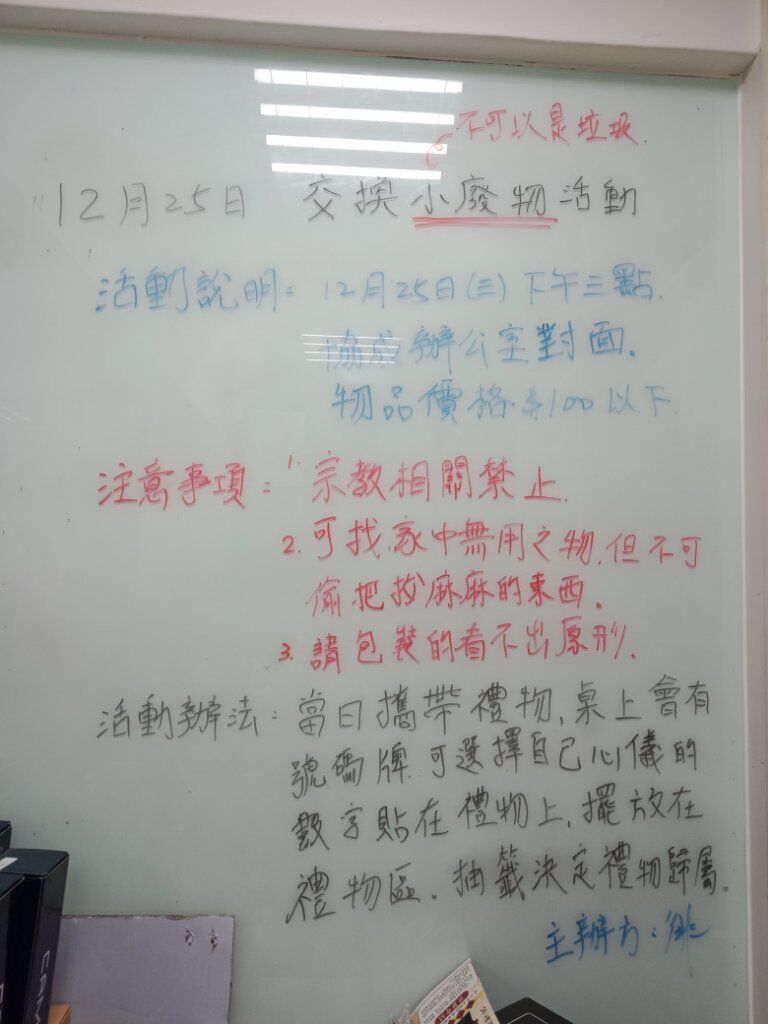 不可以是垃圾.
12月25日 交換小廢物活動
活動說明: 12月25日(三)下午三點.
協成辦公室對面.
物品價格$100以下.
注意事項: 1. 宗教相關禁止.
2. 可找家中無用之物,但不可
偷把拔麻麻的東西.
3. 請包裝的看不出原形.
活動辦法: 當日攜帶禮物,桌上會有
號碼牌 可選擇自己心儀的
數字貼在禮物上,擺放在
禮物區.抽籤決定禮物歸屬.
主辦方: